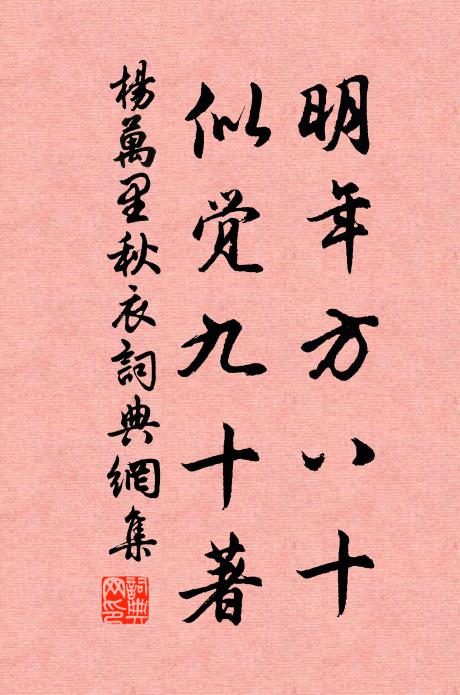 明年方八十
似觉九十著
楊萬里秋衣詞典網集
詞典網印